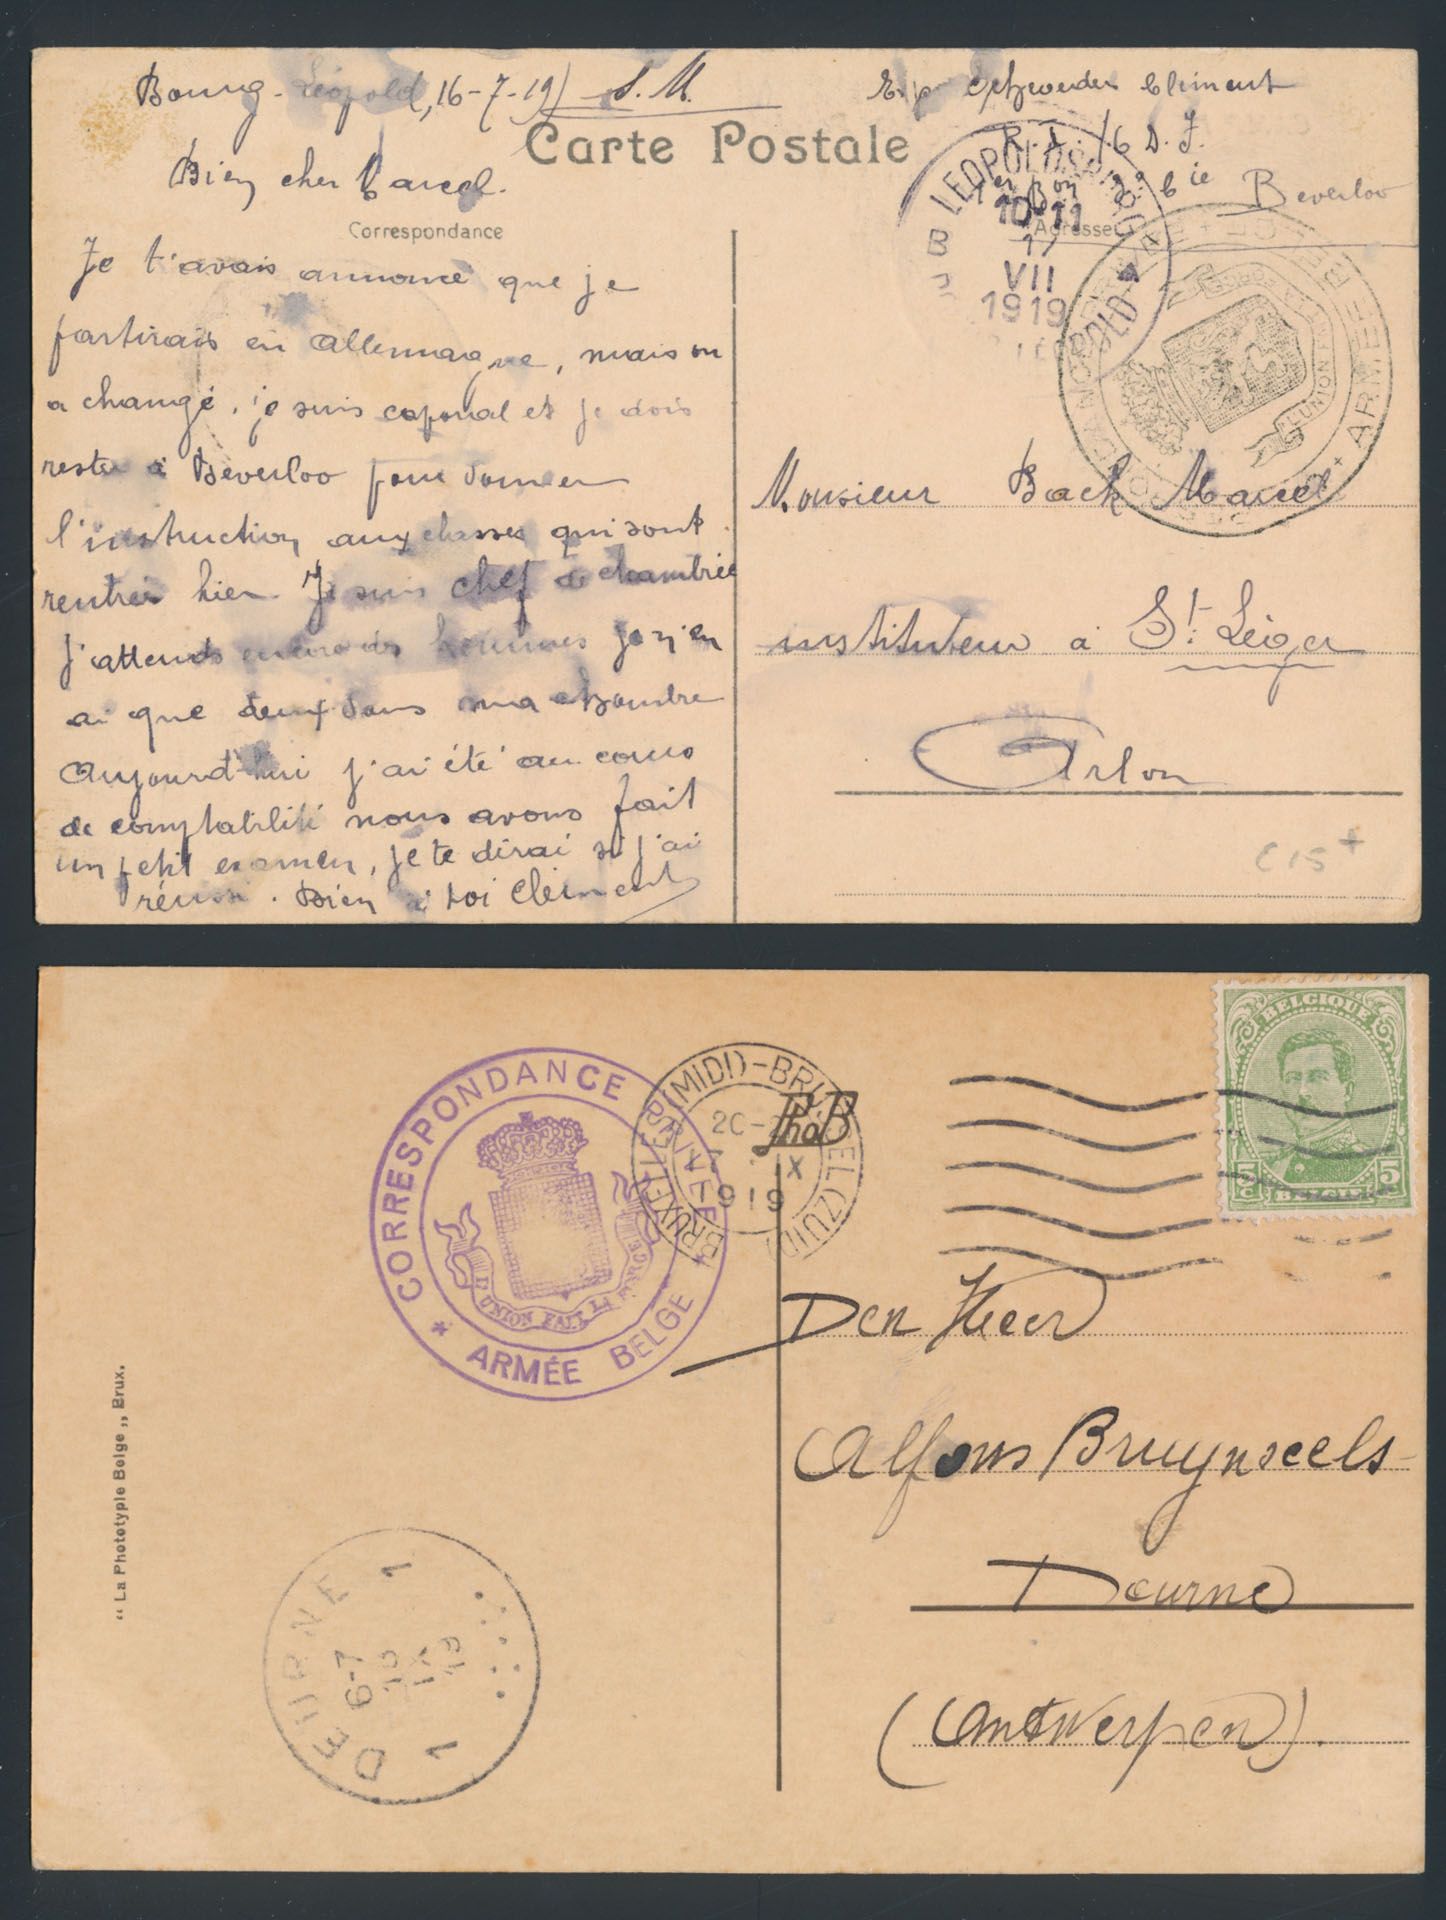 Bourg-Léopold, 16-7-19 S.M.
Carte Postale
Bien cher Marcel.
Correspondance
Je t'avais annoncé que je
partirais en Allemagne, mais on
a changé, je suis caporal et je dois
rester à Beverloo pour donner
l'instruction aux classes qui sont
rentrées hier. Je suis chef de chambrée
j'attends encore des hommes je n'en
ai que deux dans ma chambre
Aujourd'hui j'ai été au cours
de comptabilité nous avons fait
un petit examen, je te dirai si j'ai
réussi. Bien à toi Clément
Clément
6 D.I.
Beverloo
Adresse
LEOPOLD
10-11
17
VII
1919
ARMÉE BELGE
L'UNION FAIT LA FORCE
Monsieur Back Marcel
instituteur à St. Léger
Arlon
C15+
CORRESPONDANCE PRIVÉE
* ARMÉE BELGE *
L'UNION FAIT LA FORCE
BRUXELLES (MIDI)-BRUSSEL (ZUID)
IX
1919
PhoB
BELGIQUE
5c 5c
BELGIË
Den Heer
Alfons Bruynseels
Deurne
(Antwerpen).
"La Phototypie Belge,, Brux.
1 DEURNE 1
6-7
10
IX
19